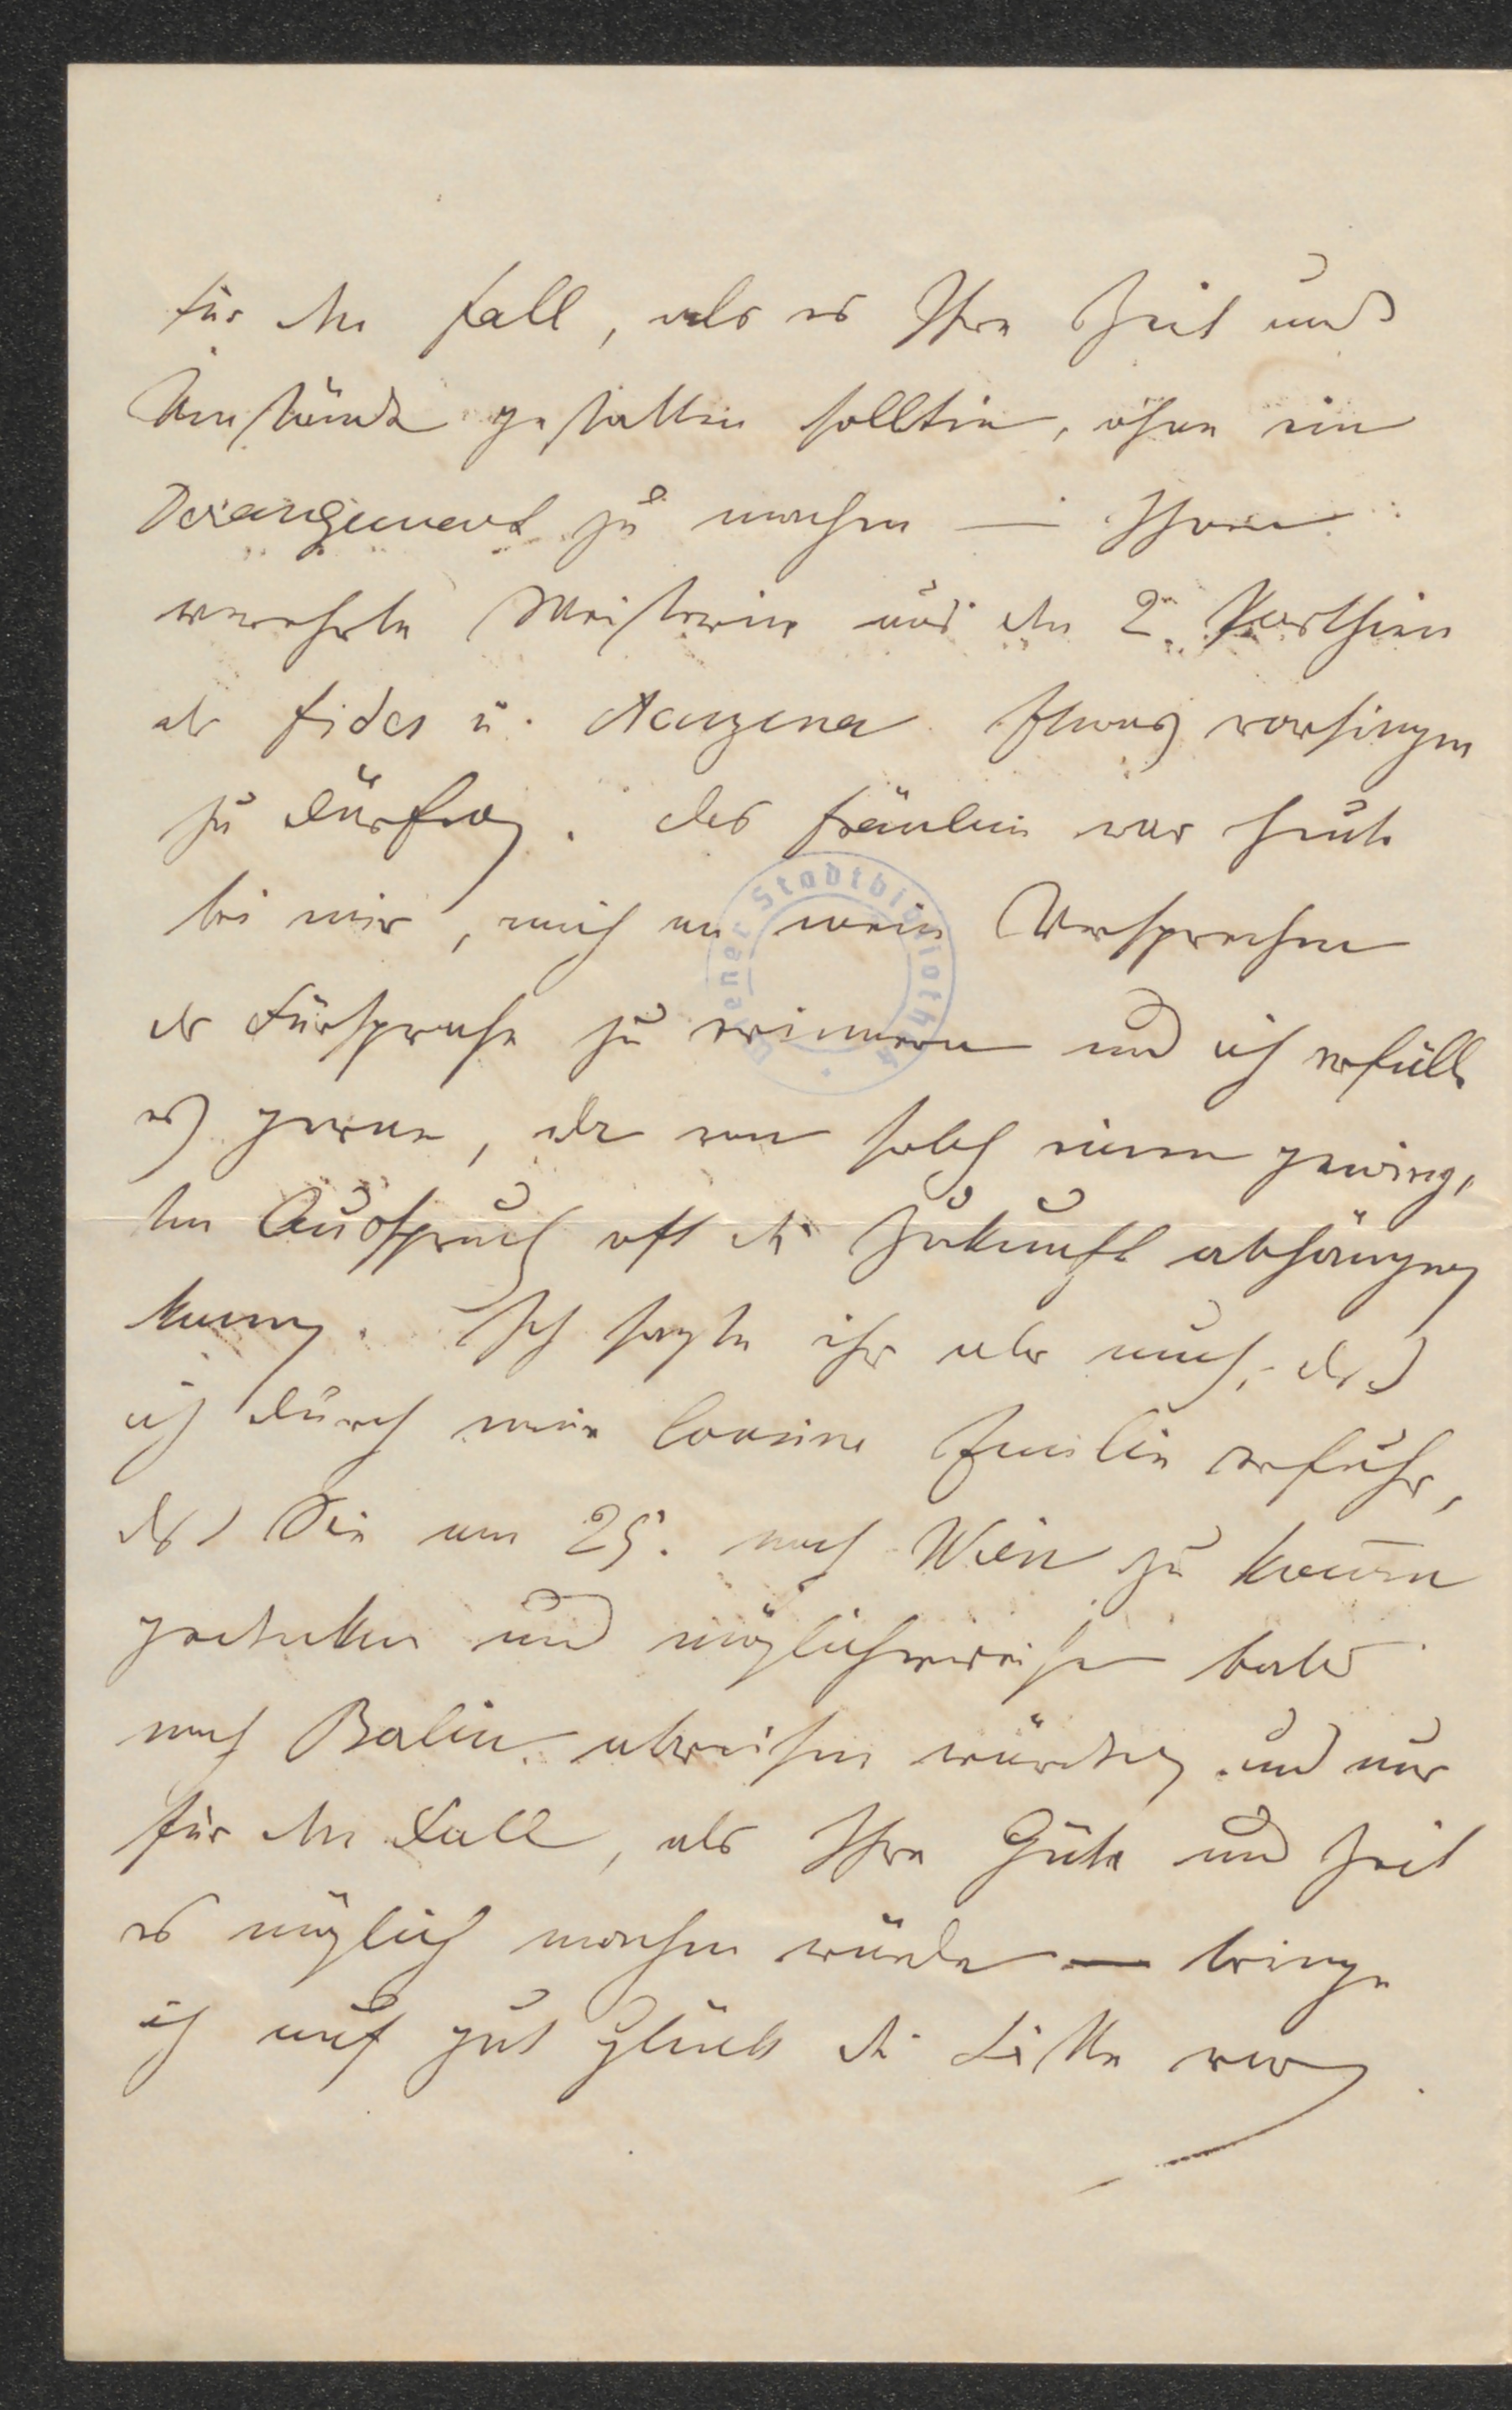 für den Fall, als es Ihre Zeit und
Umstände gestatten sollten, ohne ein
Derangement zu machen — Ihnen
verehrte Meisterin aus den 2 Parthien
als Fides u. Azuzena Etwas vorsingen
zu dürfen. Das Fräulein war heute
bei mir, mich an mein Versprechen
der Fürsprache zu erinnern und ich erfülle
es gerne, da von solch einem gewieg-
ten Ausspruch oft die Zukunft abhängen
kann. Ich sagte ihr aber auch, daß
ich durch meine Cousine Emilie erfuhr,
daß Sie am 25. nach Wien zu kom̄en
gedenken und möglicherweise bald
nach Berlin abreisen würden und nur
für den Fall, als Ihre Güte und Zeit
es möglich machen würde — bringe
ich auf gut Glück die Bitte vor.
Wiener Stadtbibliothek